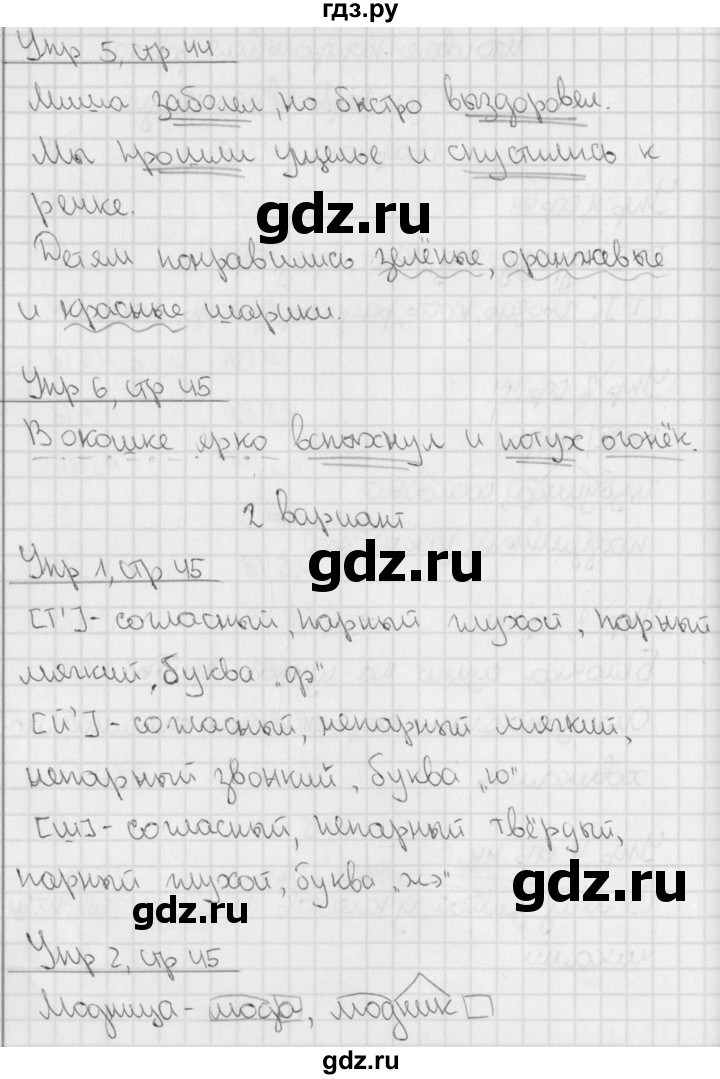 гдз.ру
Упр 5, стр 44
Миша заболел, но быстро выздоровел.
Мы прошли ущелье и спустились к
gdz.ru
речке.
Детям понравились зелёные, оранжевые
и красные шарики.
Упр 6, стр 45
В окошке ярко вспыхнул и потух огонёк.
2 вариант
gdz.ru
Упр 1, стр 45
[т'] - согласный, парный глухой, парный
мягкий, буква „ф"
[й'] - согласный, непарный мягкий,
непарный звонкий, буква „ю"
[ш] - согласный, непарный твёрдый,
парный глухой, буква „жэ"
gdz.ru
gdz.ru
Упр 2, стр 45
Модница - мода, модник
gdz.ru